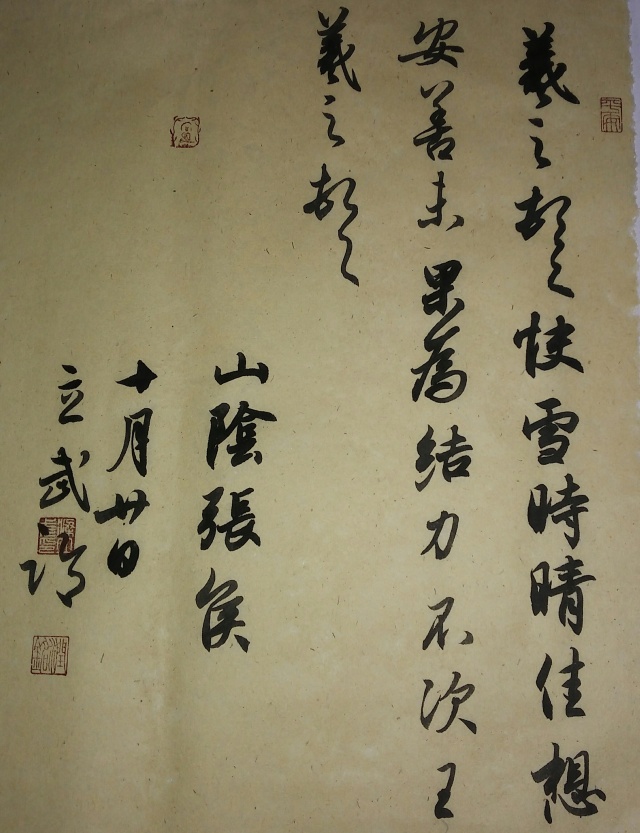 羲之頓首快雪時晴佳想
安善未果為結力不次王
羲之頓首
山陰張侯
十月廿日
立武